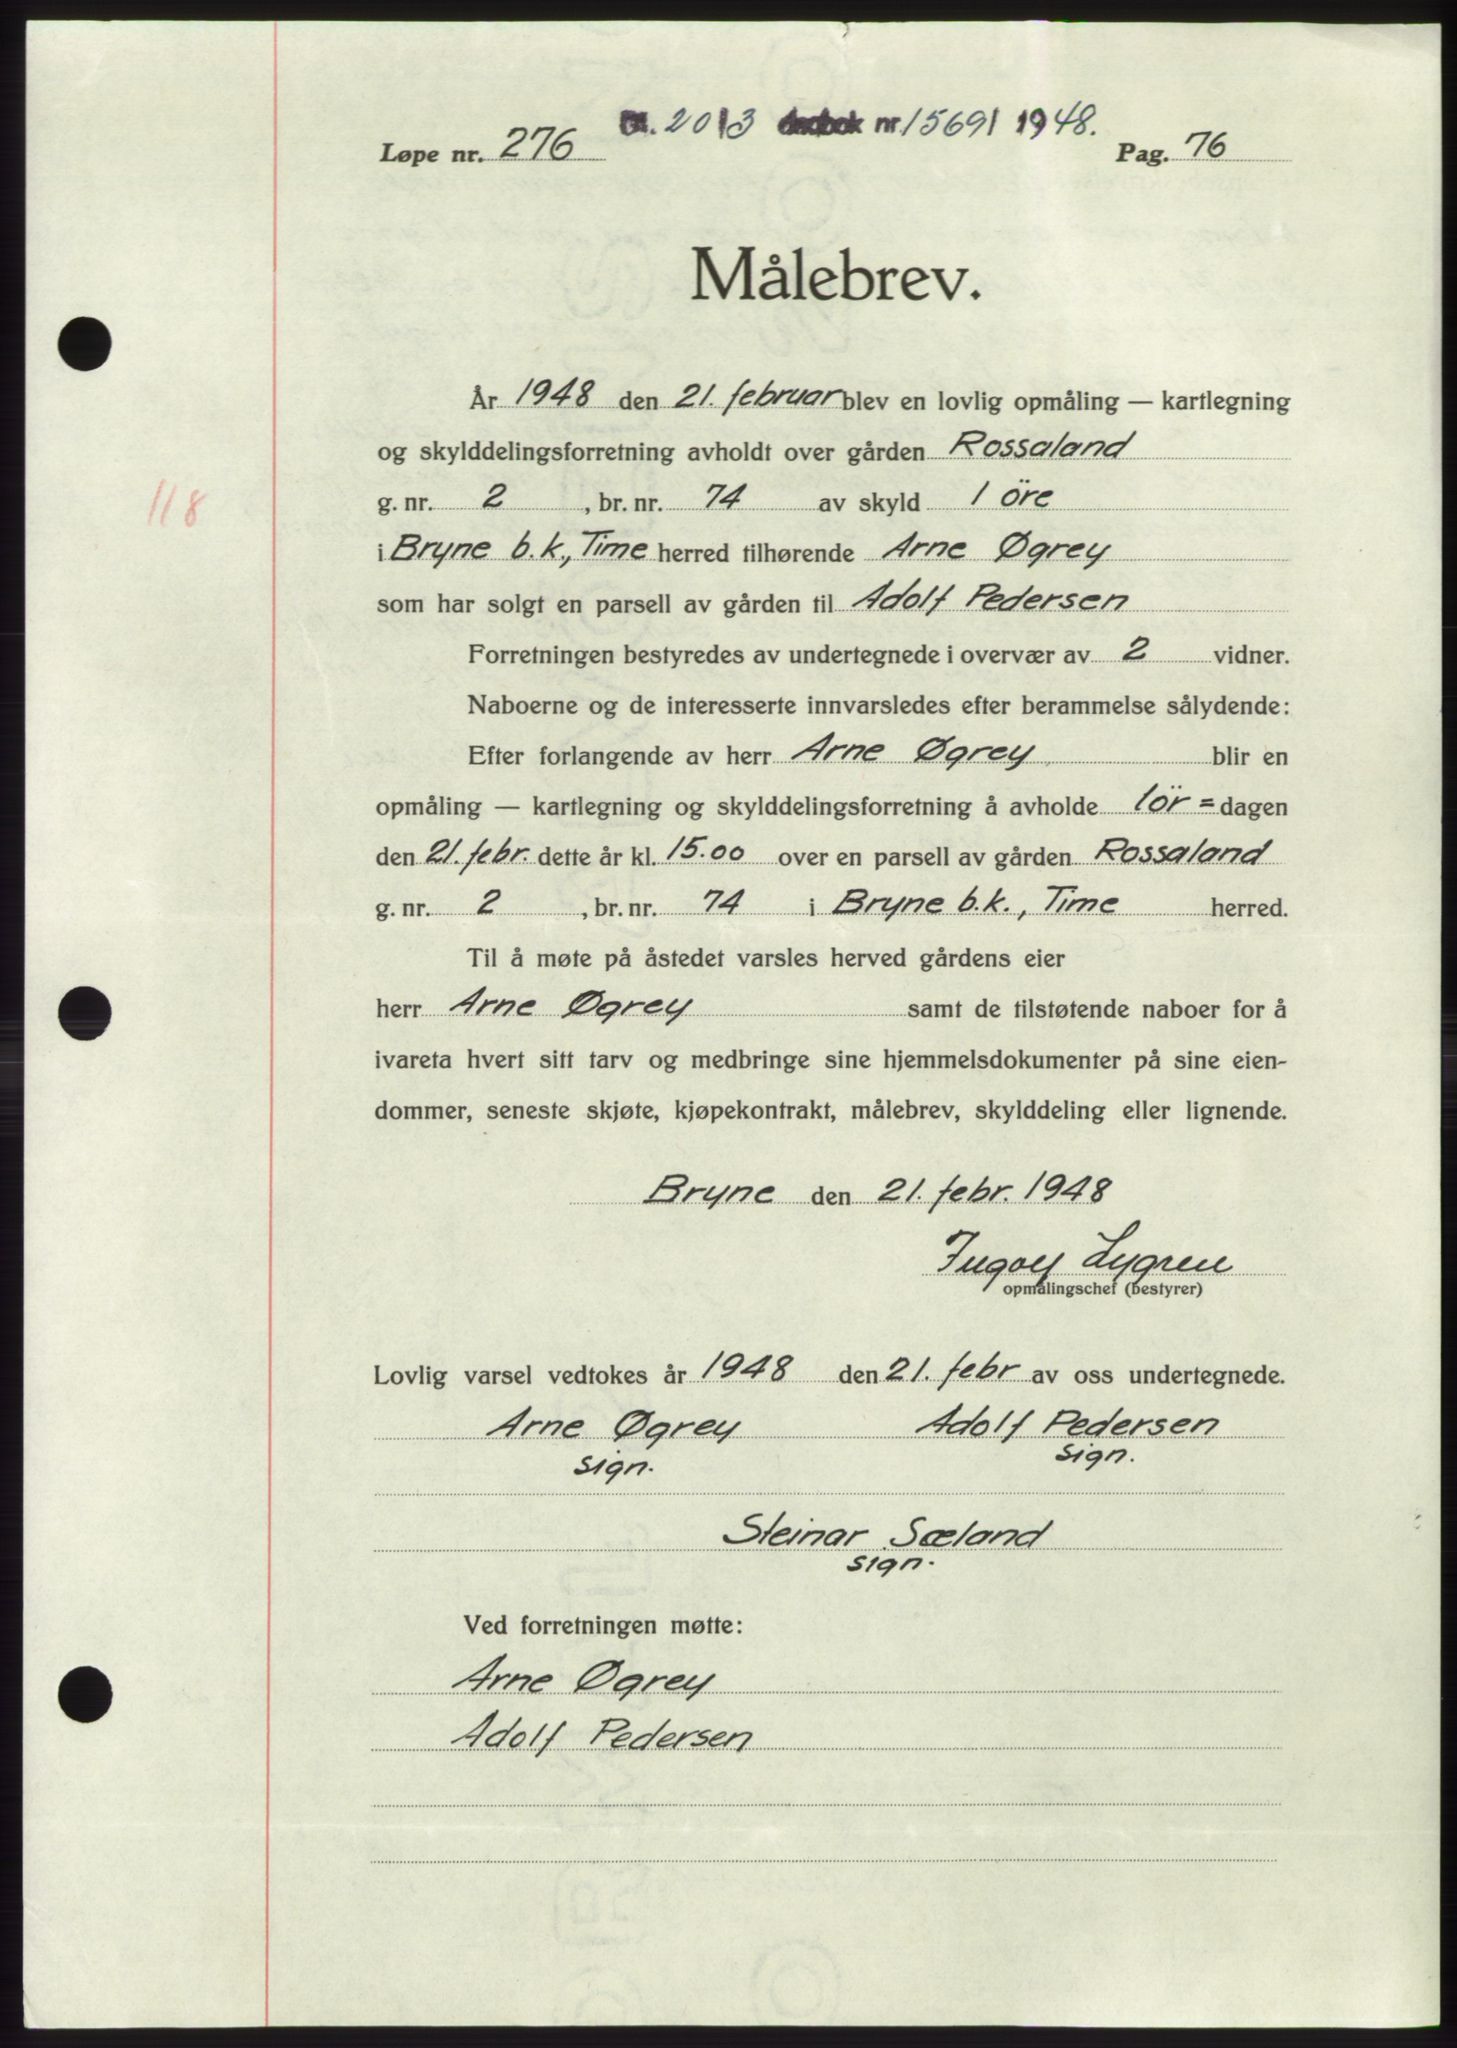 2013 nr. 1569 1948.
Løpe nr. 276 Pag. 76
Målebrev.
År 1948 den 21. februar blev en lovlig opmåling — kartlegning
og skylddelingsforretning avholdt over gården Rossaland
118
g. nr. 2, br. nr. 74 av skyld 1 öre
i Bryne b.k., Time herred tilhørende Arne Øgrey
som har solgt en parsell av gården til Adolf Pedersen
Forretningen bestyredes av undertegnede i overvær av 2 vidner.
Naboerne og de interesserte innvarsledes efter berammelse sålydende:
Efter forlangende av herr Arne Øgrey blir en
opmåling — kartlegning og skylddelingsforretning å avholde lör = dagen
den 21. febr. dette år kl. 15.00 over en parsell av gården Rossaland
g. nr. 2, br. nr. 74 i Bryne b.k., Time herred.
Til å møte på åstedet varsles herved gårdens eier
herr Arne Øgrey samt de tilstøtende naboer for å
ivareta hvert sitt tarv og medbringe sine hjemmelsdokumenter på sine eien-
dommer, seneste skjøte, kjøpekontrakt, målebrev, skylddeling eller lignende.
Bryne den 21. febr. 1948
Ingolf Lygren
opmålingschef (bestyrer)
Lovlig varsel vedtokes år 1948 den 21. febr av oss undertegnede.
Arne Øgrey Adolf Pedersen
sign. sign.
Steinar Sæland
sign.
Ved forretningen møtte:
Arne Øgrey
Adolf Pedersen